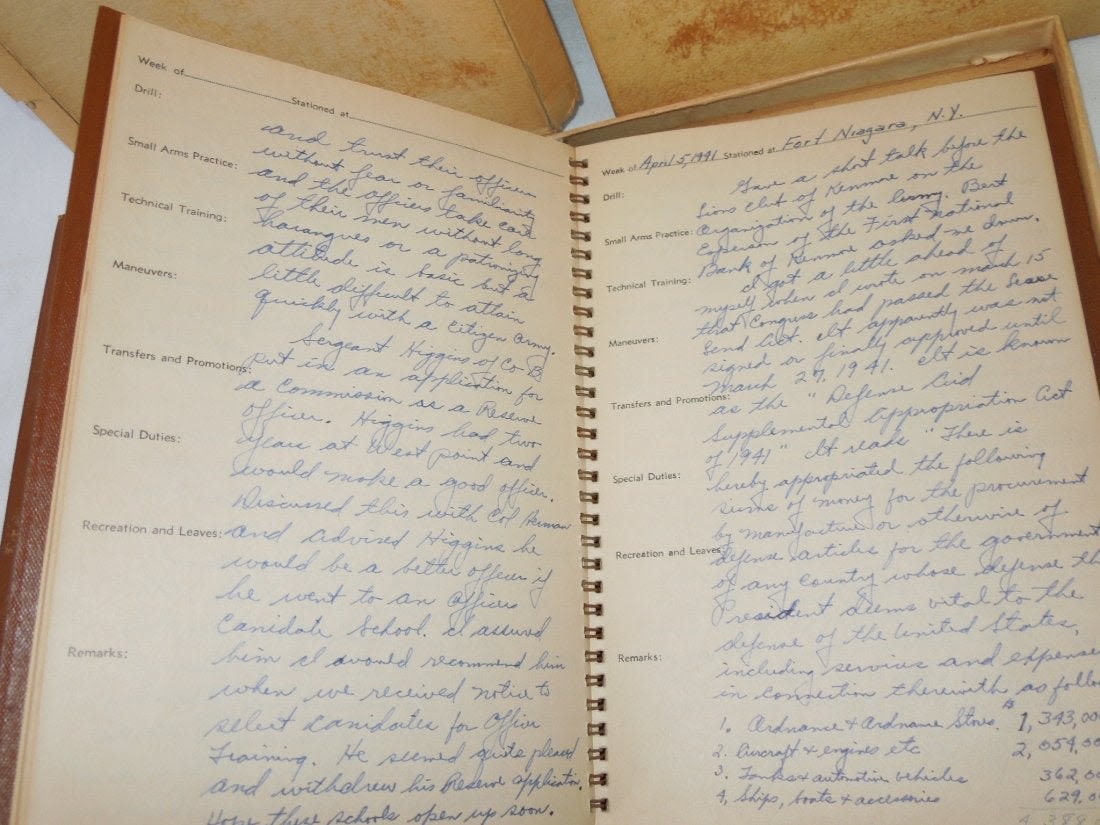 Week of
Stationed at
Drill:
and trust their officers
without fear or familiarity
Small Arms Practice:
and the officers take care
of their men without long
Technical Training:
harangues or a patronizing
attitude is basic but a
Maneuvers:
little difficult to attain
quickly with a citizen army.
Sergeant Higgins of Co B
Transfers and Promotions:
put in an application for
a Commission as a Reserve
officer. Higgins had two
Special Duties:
years at West point and
would make a good officer.
Discussed this with Col Herman
Recreation and Leaves:
and advised Higgins he
would be a better officer if
he went to an Officers
Canidate School. I assured
Remarks:
him I would recommend him
when we received notice to
select canidates for Officer
Training. He seemed quite pleased
and withdrew his Reserve application.
Hope these schools open up soon.
Week of April 5, 1941 Stationed at Fort Niagara, N.Y.
Drill:
Gave a short talk before the
Lions Club of Kenmore on the
Small Arms Practice:
Organization of the Army. Bert
of the First National
Bank of Kenmore asked me down.
Technical Training:
I got a little ahead of
myself when I wrote on march 15
that Congress had passed the Lease
Maneuvers:
Lend Act. It apparently was not
signed or finally approved until
March 27, 1941. It is known
Transfers and Promotions:
as the "Defense Aid
Supplemental Appropriation Act
of 1941" It reads "There is
Special Duties:
hereby appropriated the following
sums of money for the procurement
by manufacture or otherwise of
Recreation and Leaves:
defense articles for the government
of any country whose defense the
President deems vital to the
defense of the United States,
Remarks:
including services and expenses
in connection therewith as follo
1. Ordnance & Ordnance Stores 1,343,00
2. Aircraft & engines etc 2,054,00
3. Tanks & automotive vehicles 362,00
4, Ships, boats & accessories 629,0
4,388